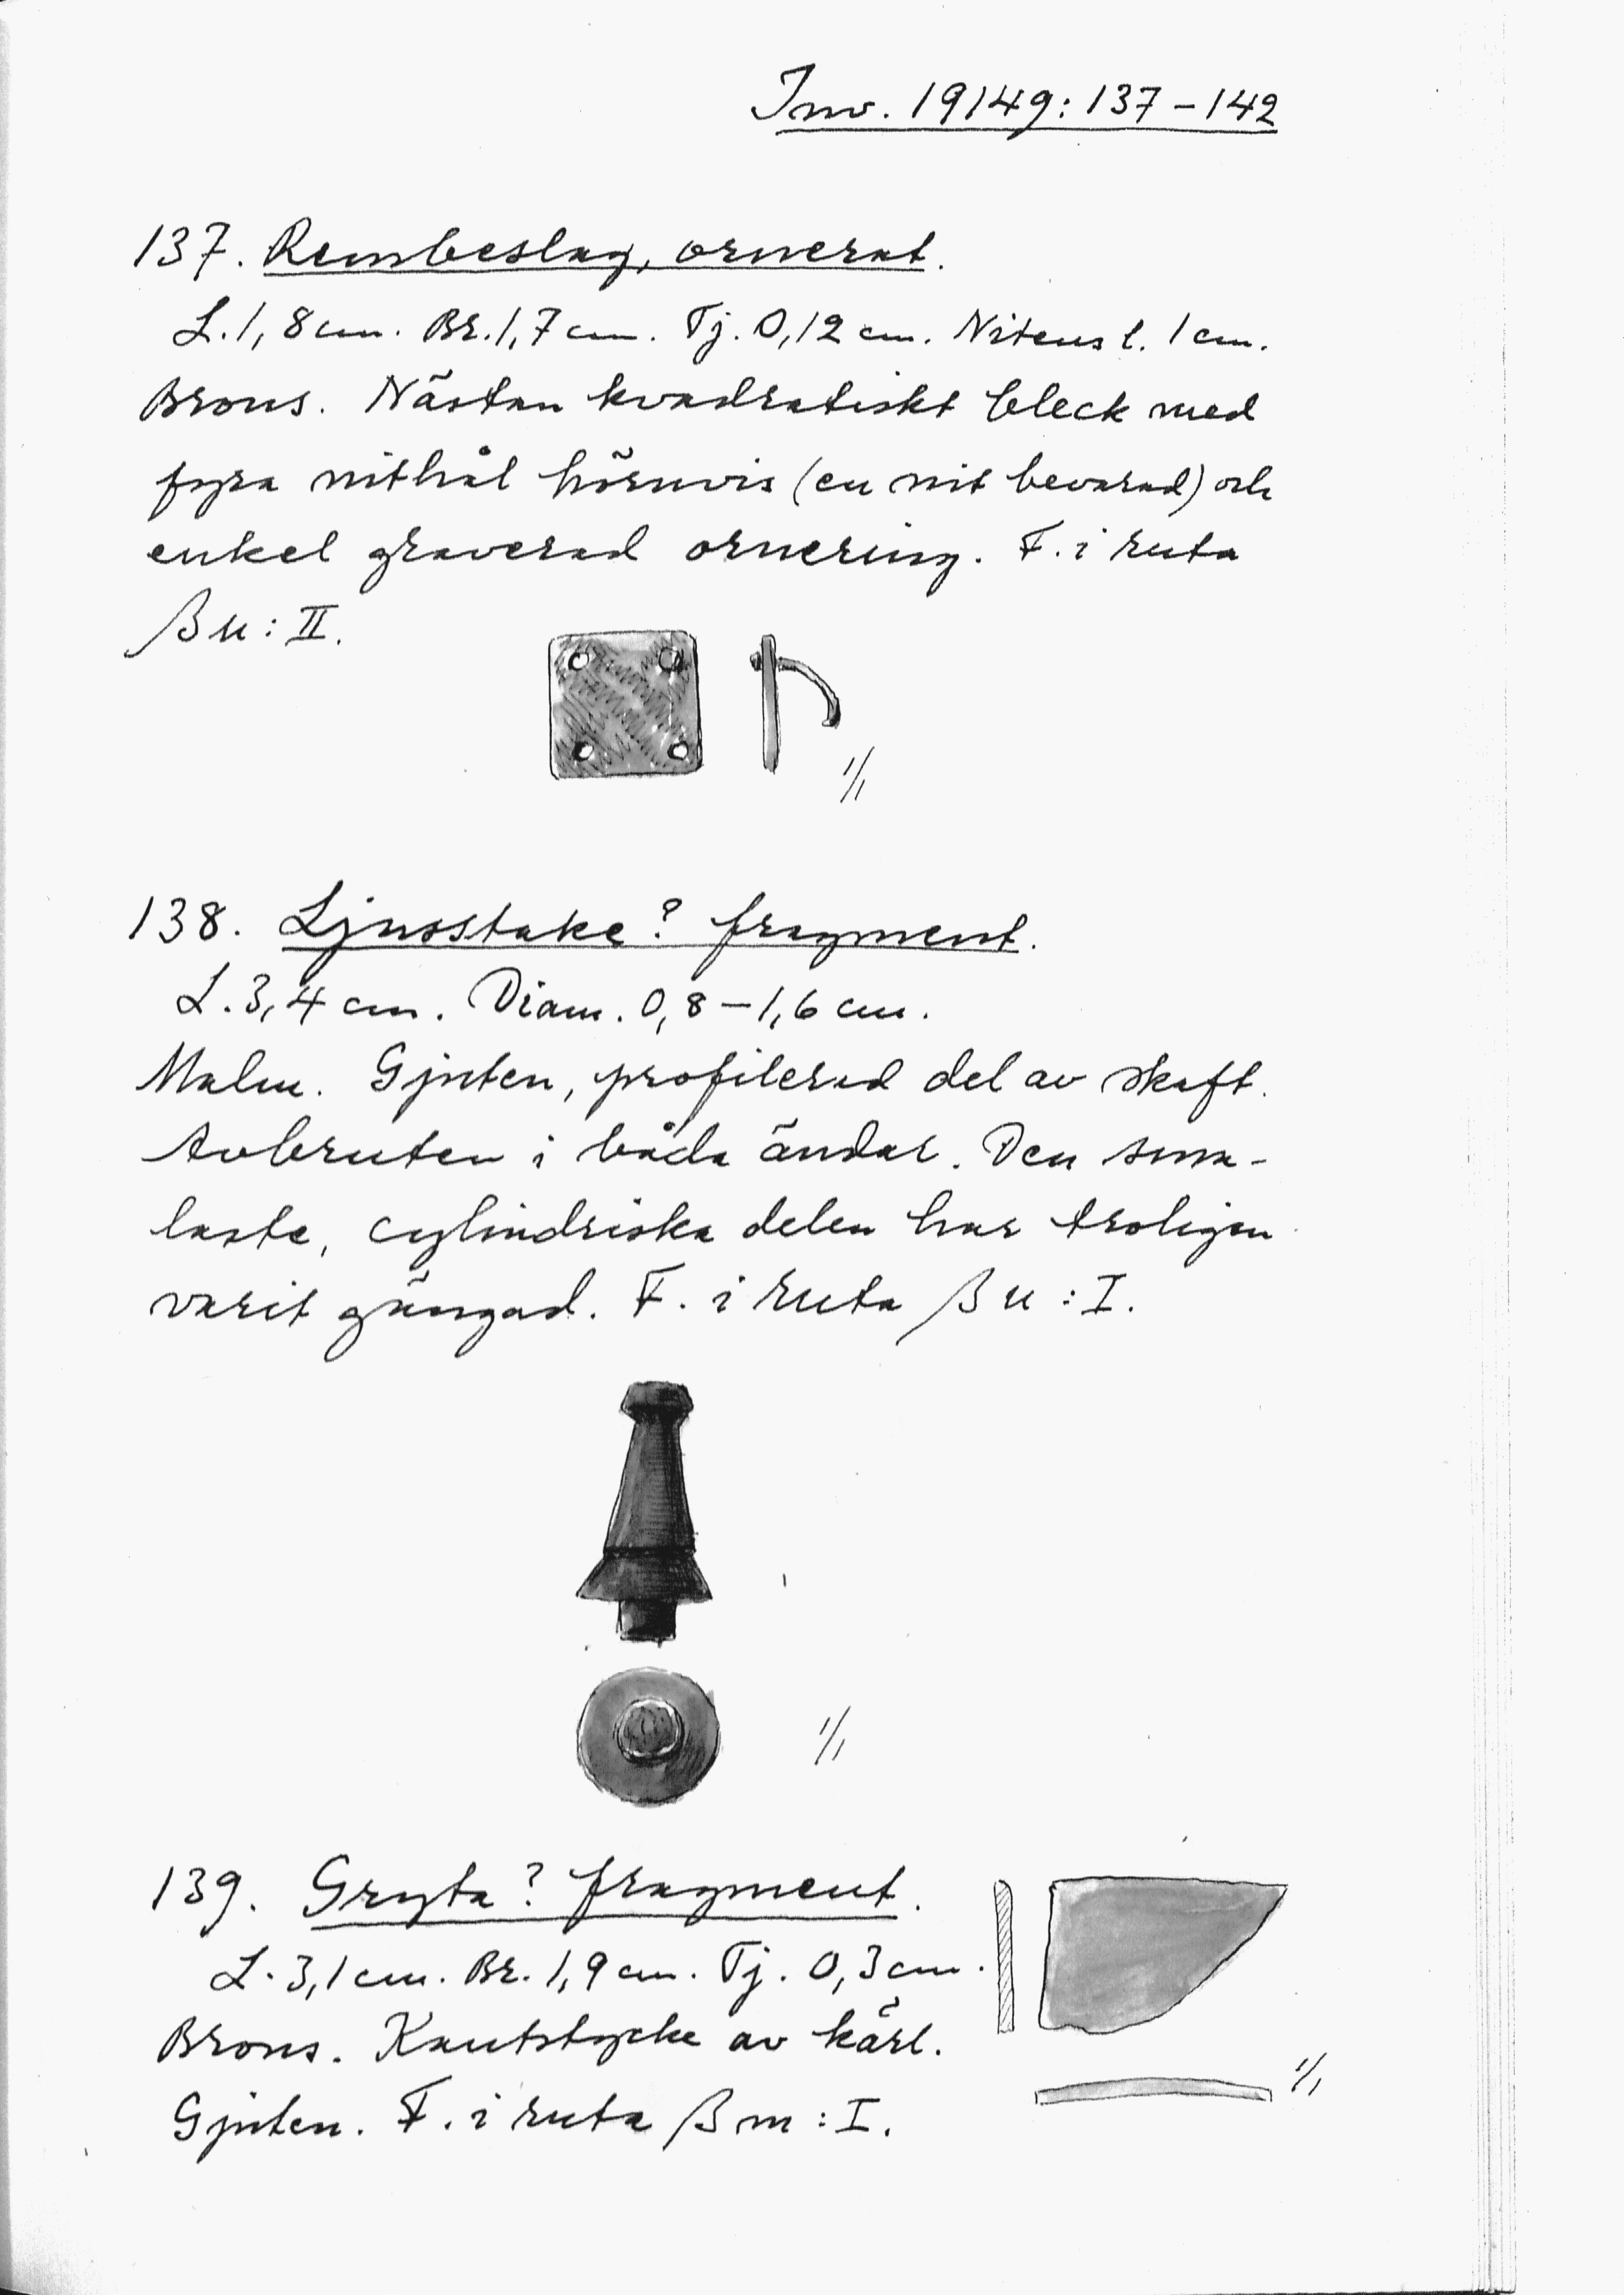 Inv. 19149:137-142
137. Rembeslag, ornerat.
L. 1,8 cm. Br. 1,7 cm. Tj. 0,12 cm. Nitens l. 1 cm.
Brons. Nästan kvadratiskt bleck med
fyra nithål hörnvis (en nit bevarad) och
enkel graverad ornering. F. i ruta
βu:II.
1/1
138. Ljusstake? fragment.
L. 3,4 cm. Diam. 0,8-1,6 cm.
Malm. Gjuten, profilerad del av skaft.
Avbruten i båda ändar. Den sma-
laste, cylindriska delen har troligen
varit gängad. F. i ruta βu:I.
1/1
139. Gryta? fragment.
L. 3,1 cm. Br. 1,9 cm. Tj. 0,3 cm.
Brons. Kantstycke av kärl.
Gjuten. F. i ruta βm:I.
1/1